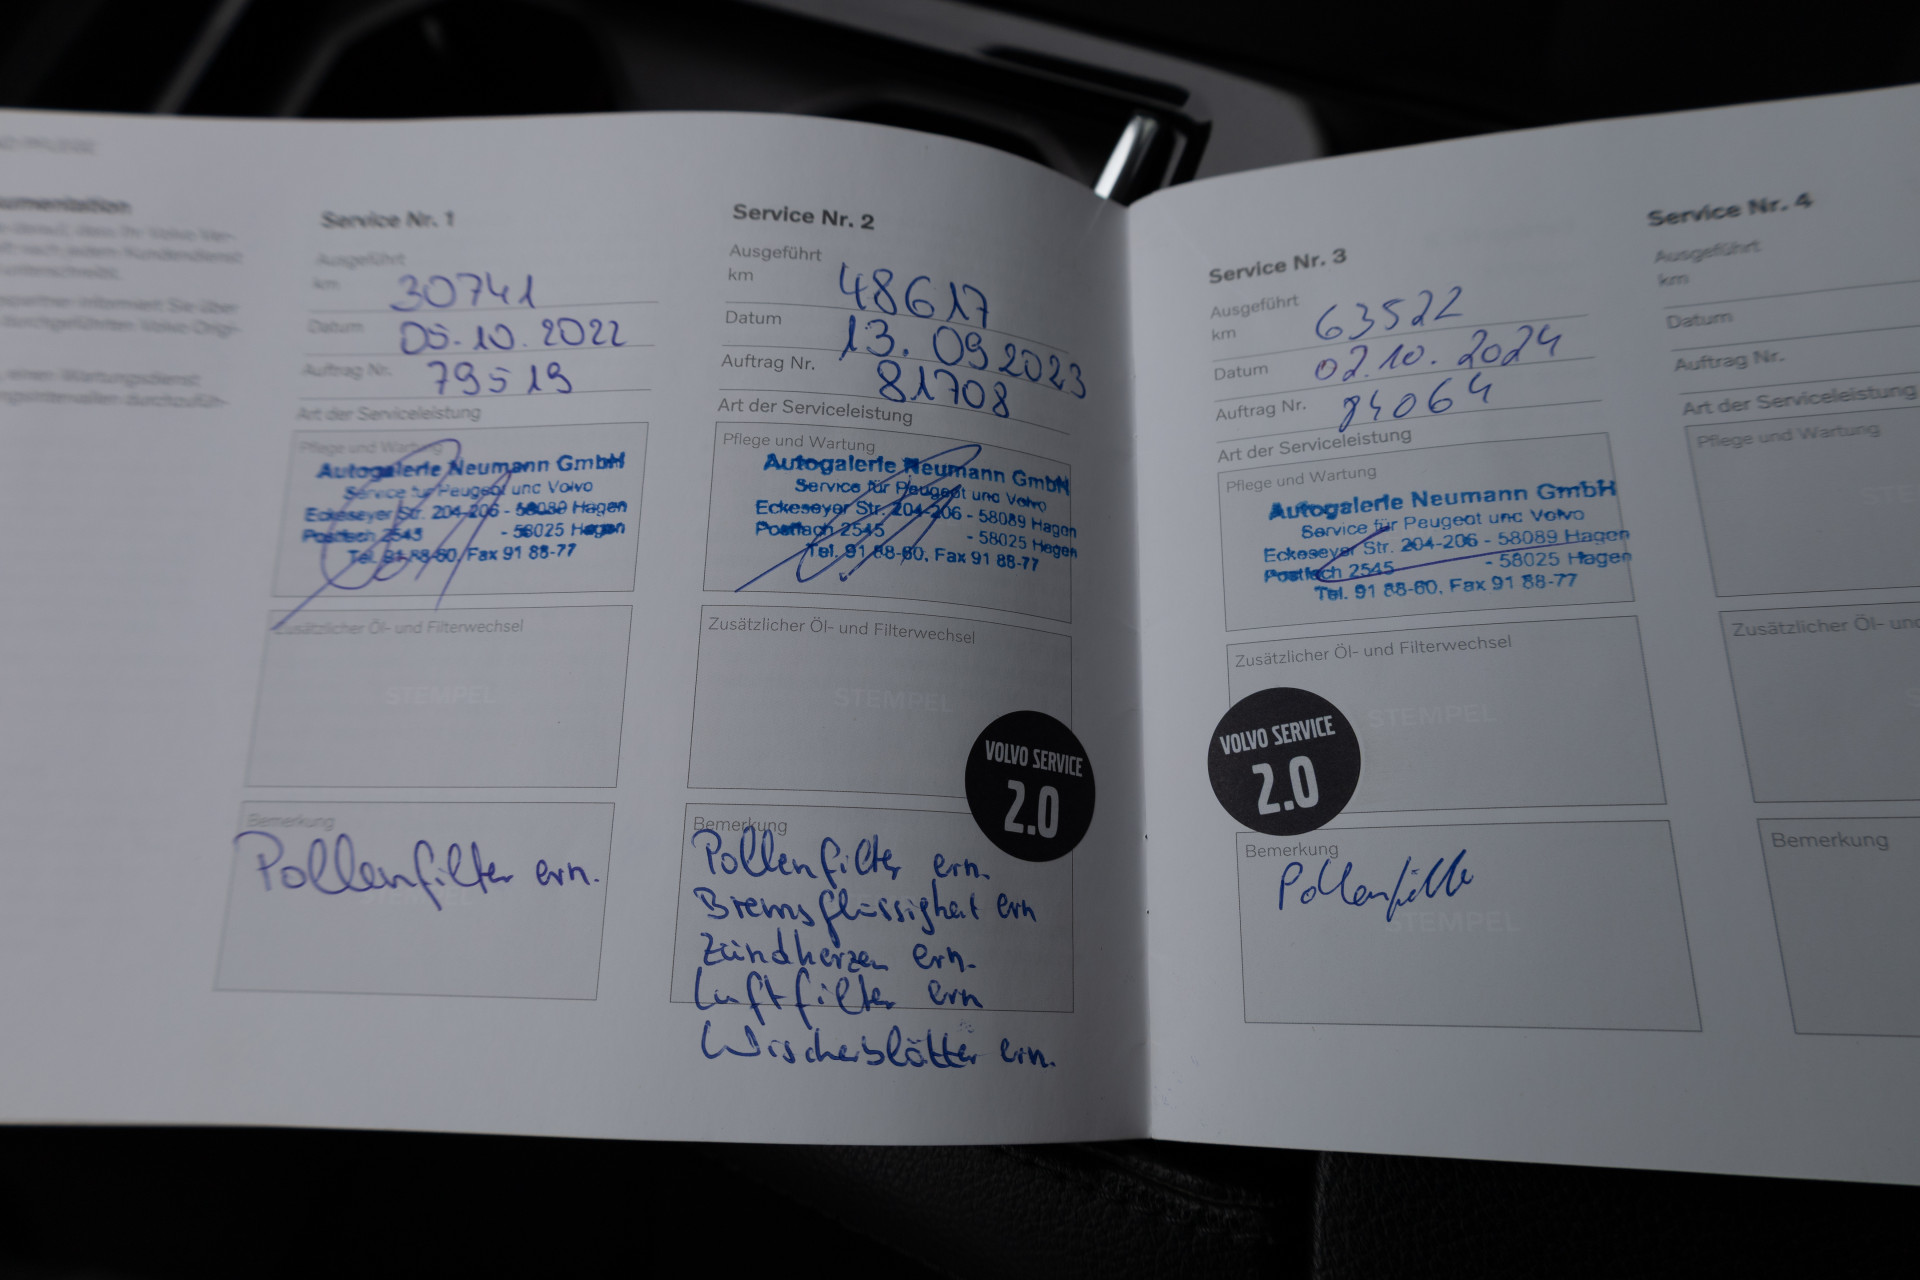 Service Nr. 1
Ausgeführt
km 30741
Datum 05.10.2022
Auftrag Nr. 79519
Art der Serviceleistung
Pflege und Wartung
Autogalerie Neumann GmbH
Service für Peugeot und Volvo
Eckeseyer Str. 204-206 - 58089 Hagen
Postfach 2545 - 58025 Hagen
Tel. 91 88-60, Fax 91 88-77
Zusätzlicher Öl- und Filterwechsel
STEMPEL
Bemerkung
Pollenfilter ern.
STEMPEL
Service Nr. 2
Ausgeführt
km 48617
Datum 13.09.2023
Auftrag Nr. 81708
Art der Serviceleistung
Pflege und Wartung
Autogalerie Neumann GmbH
Service für Peugeot und Volvo
Eckeseyer Str. 204-206 - 58089 Hagen
Postfach 2545 - 58025 Hagen
Tel. 91 88-60, Fax 91 88-77
Zusätzlicher Öl- und Filterwechsel
STEMPEL
VOLVO SERVICE
2.0
Bemerkung
Pollenfilter ern.
Bremsflüssigkeit ern
Zündkerzen ern.
Luftfilter ern
Wischerblätter ern.
Service Nr. 3
Ausgeführt
km 63522
Datum 02.10.2024
Auftrag Nr. 84064
Art der Serviceleistung
Pflege und Wartung
Autogalerie Neumann GmbH
Service für Peugeot und Volvo
Eckeseyer Str. 204-206 - 58089 Hagen
Postfach 2545 - 58025 Hagen
Tel. 91 88-60, Fax 91 88-77
Zusätzlicher Öl- und Filterwechsel
STEMPEL
VOLVO SERVICE
2.0
Bemerkung
Pollenfilter
STEMPEL
Service Nr. 4
Ausgeführt
km
Datum
Auftrag Nr.
Art der Serviceleistung
Pflege und Wartung
Zusätzlicher Öl- und
Bemerkung